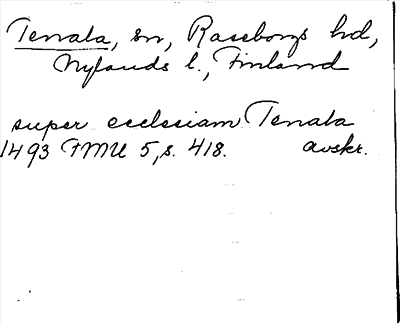 Tenala, sn, Raseborgs hd,
Nylands l., Finland
super ecclesiam Tenala
1493 FMU 5, s. 418. avskr.